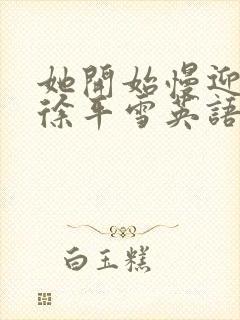 她開始慢迎
徐平雪英語
白玉糕